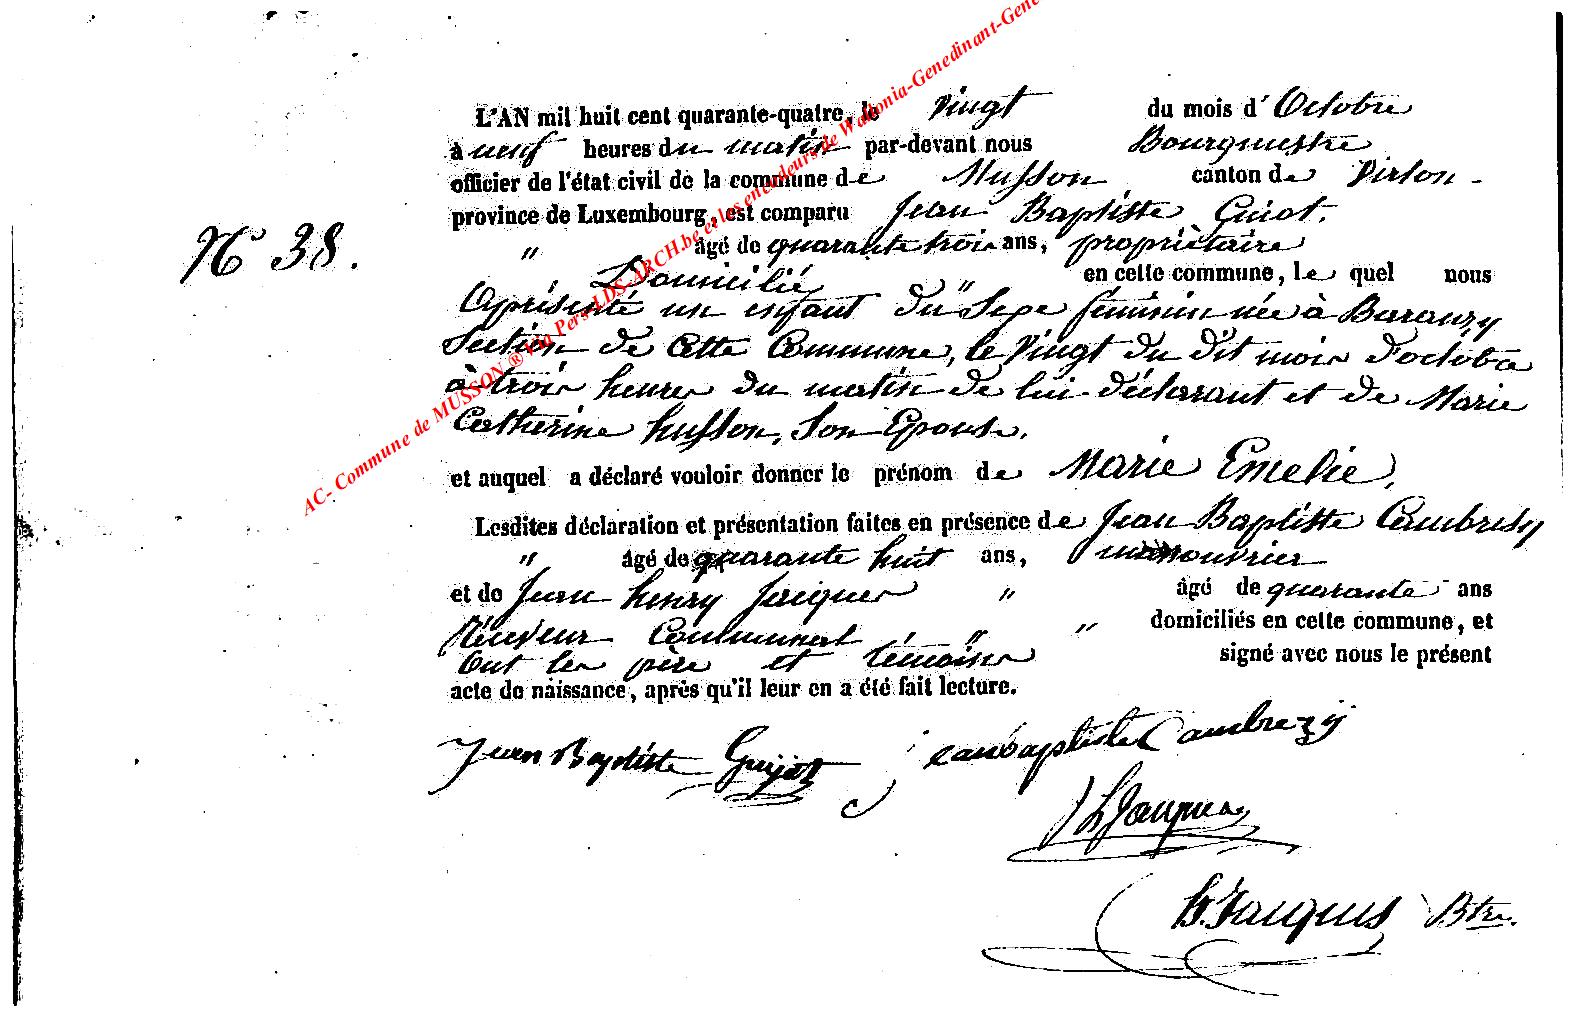 L'AN mil huit cent quarante-quatre, le vingt du mois d' Octobre
à neuf heures du matin par-devant nous Bourgmestre
officier de l'état civil de la commune de Musson canton de Virton -
province de Luxembourg, est comparu Jean Baptiste Guiot.
N° 38.
" âgé de quarante trois ans, propriètaire
Domicilié en cette commune, le quel nous
a présenté un enfant du " Sexe féminin née à Baranzy
Section de Cette Commune, le Vingt du dit mois d'octobre
à trois heures du matin de lui déclarant et de Marie
Catherine husson, Son Epouse.
et auquel a déclaré vouloir donner le prénom de Marie Emelie,
Lesdites déclaration et présentation faites en présence de Jean Baptiste Cambresy
" âgé de quarante huit ans, manouvrier
et de Jean henry Jacques " âgé de quarante ans
Réceveur Communal " " domiciliés en cette commune, et
Ont les père et témoins signé avec nous le présent
acte de naissance, après qu'il leur en a été fait lecture.
Jean Baptiste Guiot jeanbaptiste Cambrezÿ
JhJacques
h. Jacques Btre.
AC- Commune de MUSSON ® via Pers-LDS-ARCH.be et les encodeurs de Wallonia-Genedinant-Gene